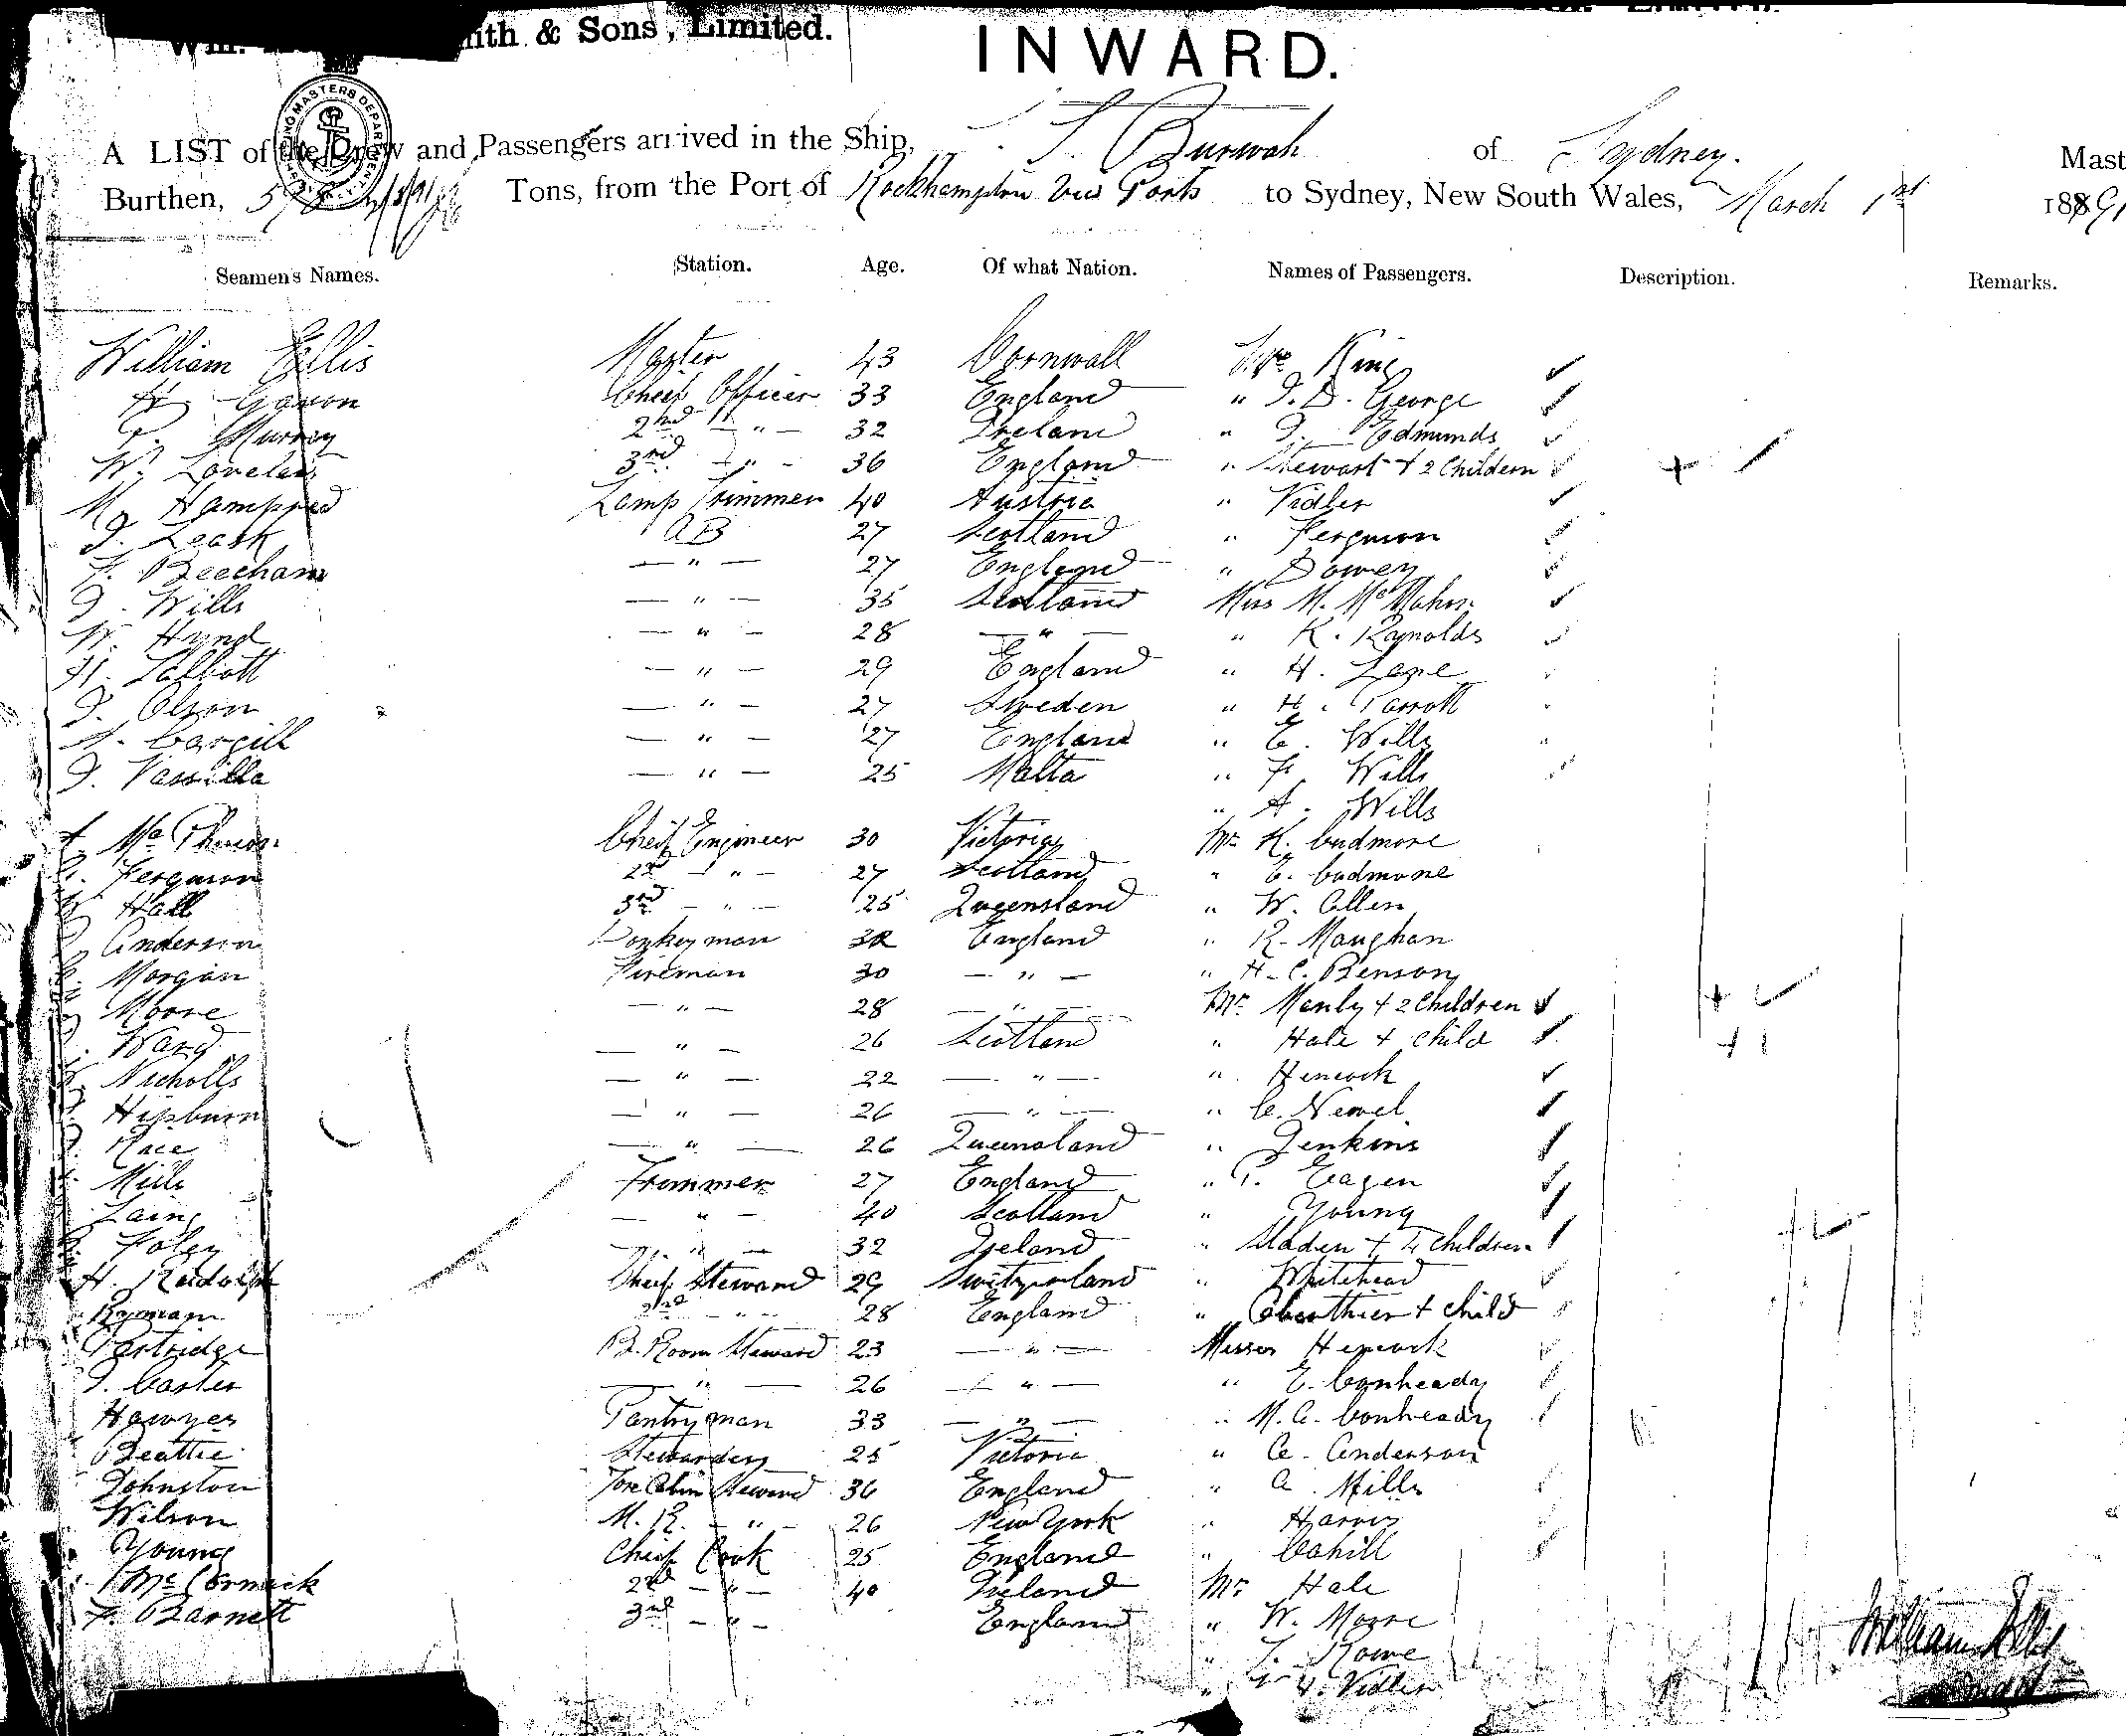 ith & Sons, Limited.
INWARD.
A LIST of the Crew and Passengers arrived in the Ship, S. Burwah of Sydney. Mast
Burthen, 578 Tons, from the Port of Rockhampton via Ports to Sydney, New South Wales, March 1st 1891
Seamen's Names. Station. Age. Of what Nation. Names of Passengers. Description. Remarks.
William Ellis Master 43 Cornwall King
Chief Officer 33 England " J. D. George
Murray 2nd - " - 32 Ireland " Edmunds
W. 3rd - " - 36 England " Stewart + 2 Childern
Lamp Trimmer 40 Austria " Vidler
J. Leask AB 27 Scotland " Ferguson
F. Beecham - " - 27 England "
J. Wills - " - 35 Scotland Miss M. McMahon
W. Hynd - " - 28 - " - " K. Raynolds
H. Talbott - " - 29 England " H. Lane
J. Olson - " - 27 Sweden " H. Parrott
A. Cargill - " - 27 England " E. Wills
J. Vassilla - " - 25 Malta " F. Wills
" A. Wills
Chief Engineer 30 Victoria Mr K. Cudmore
Ferguson 2nd - " - 27 Scotland " Cudmore
Hall 3rd - " - 25 Queensland " W. Allen
Anderson Donkeyman 32 England " R. Maughan
Morgan Fireman 30 - " - " H. C. Benson
Moore - " - 28 - " - Manly + 2 Children
Ward - " - 26 Scotland " Hale + Child
Nicholls - " - 22 - " - " Hencock
Hepburn - " - 26 - " - " C. Newel
Race - " - 26 Queensland " Jenkins
Trimmer 27 England " P. Eagen
Laing - " - 40 Scotland " Young
Foley - " - 32 Ireland " Sladen + 4 Children
H. Rudolph Chief Steward 29 Switzerland " Whitehead
2nd " 28 England " + Child
Partridge B. Room Steward 23 - " - Misses Hencock
J. Carter - " - 26 - " - " E. Conheady
Hawyes Pantryman 33 - " - " M. A. Conheady
Beattie Stewardess 25 Victoria " A. Anderson
Johnston Fore Cabin Steward 36 England " A. Mills
Wilson M. R. - " - 26 New York " Harris
Young Chief Cook 25 England " Cahill
McCormack 2nd - " - 40 Ireland Mr Hale
F. Barnett 3rd - " - England " W. Moore
" Rowe
" Vidler
William Ellis